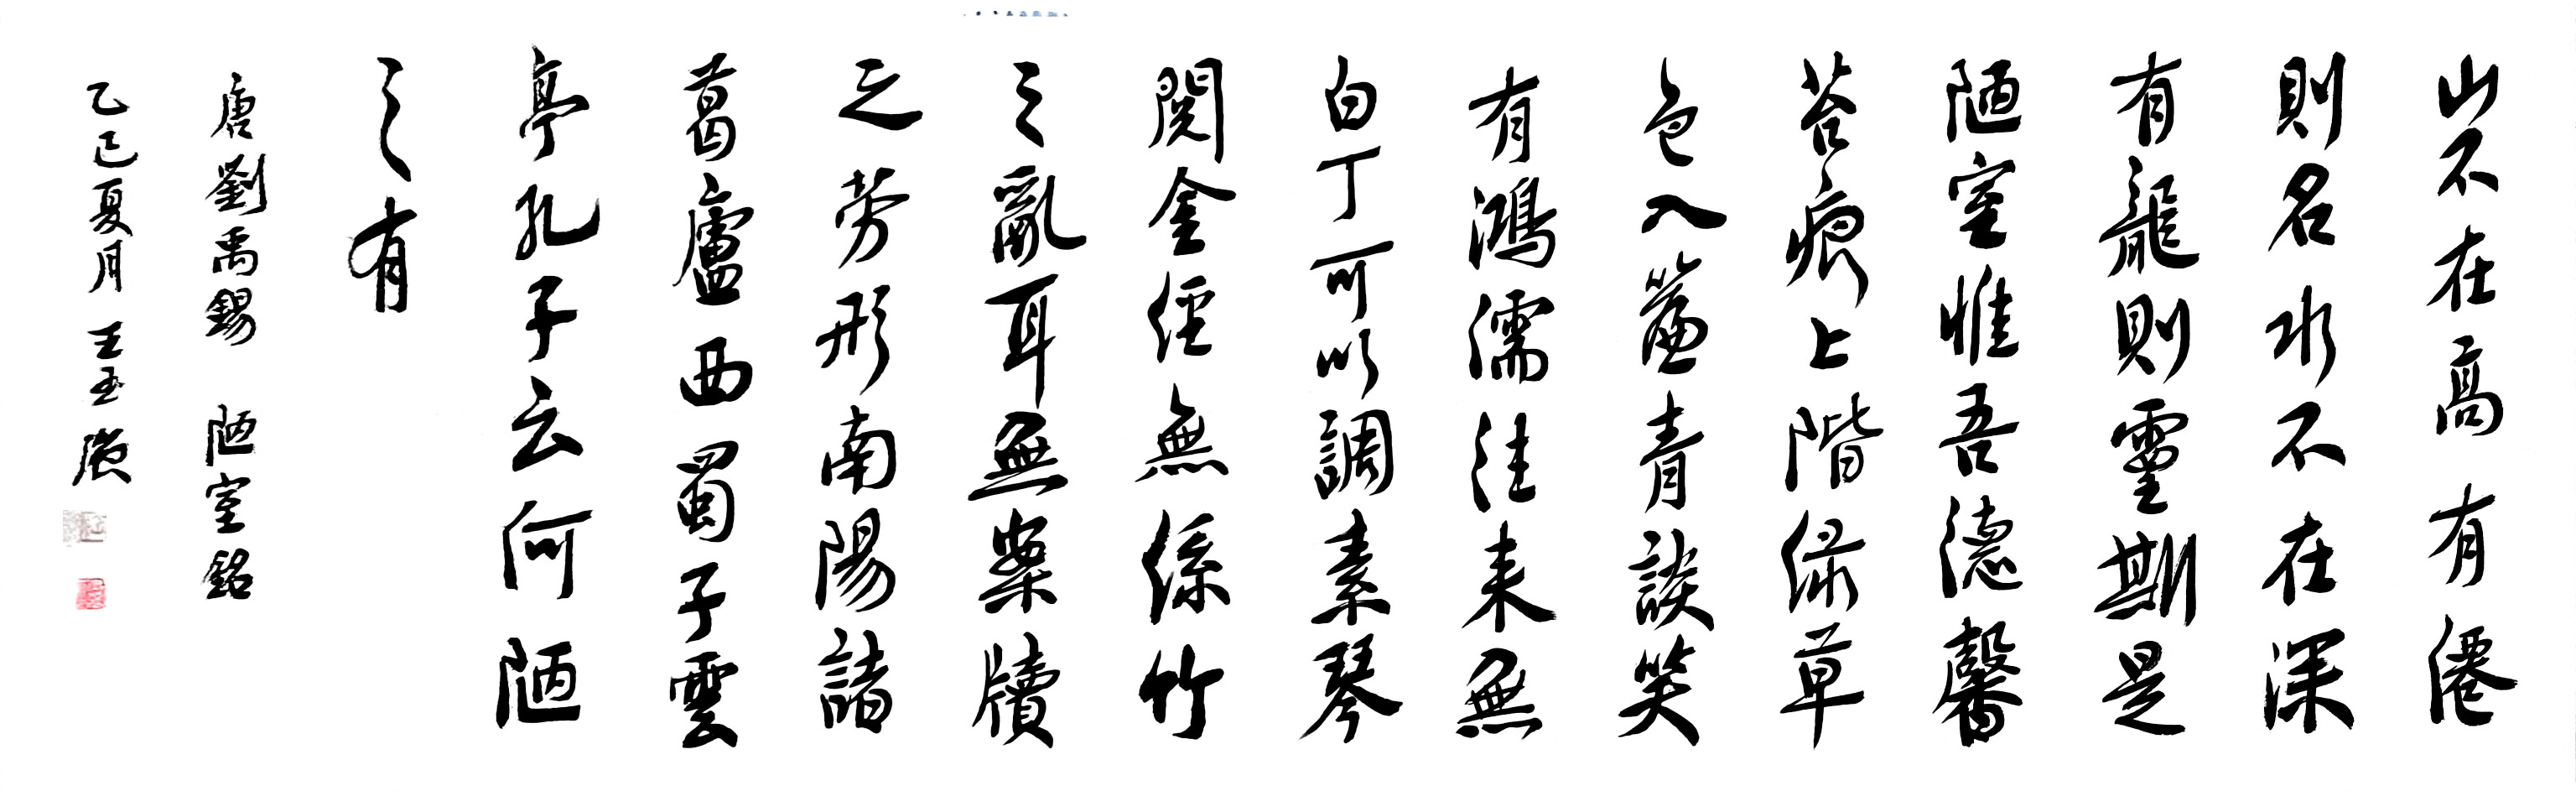 山不在高有僊
則名水不在深
有龍則靈斯是
陋室惟吾德馨
苔痕上階綠草
色入簾青談笑
有鴻儒往來無
白丁可以調素琴
閱金經無絲竹
之亂耳無案牘
之勞形南陽諸
葛廬西蜀子雲
亭孔子云何陋
之有
唐劉禹錫 陋室銘
乙巳夏月 王玉